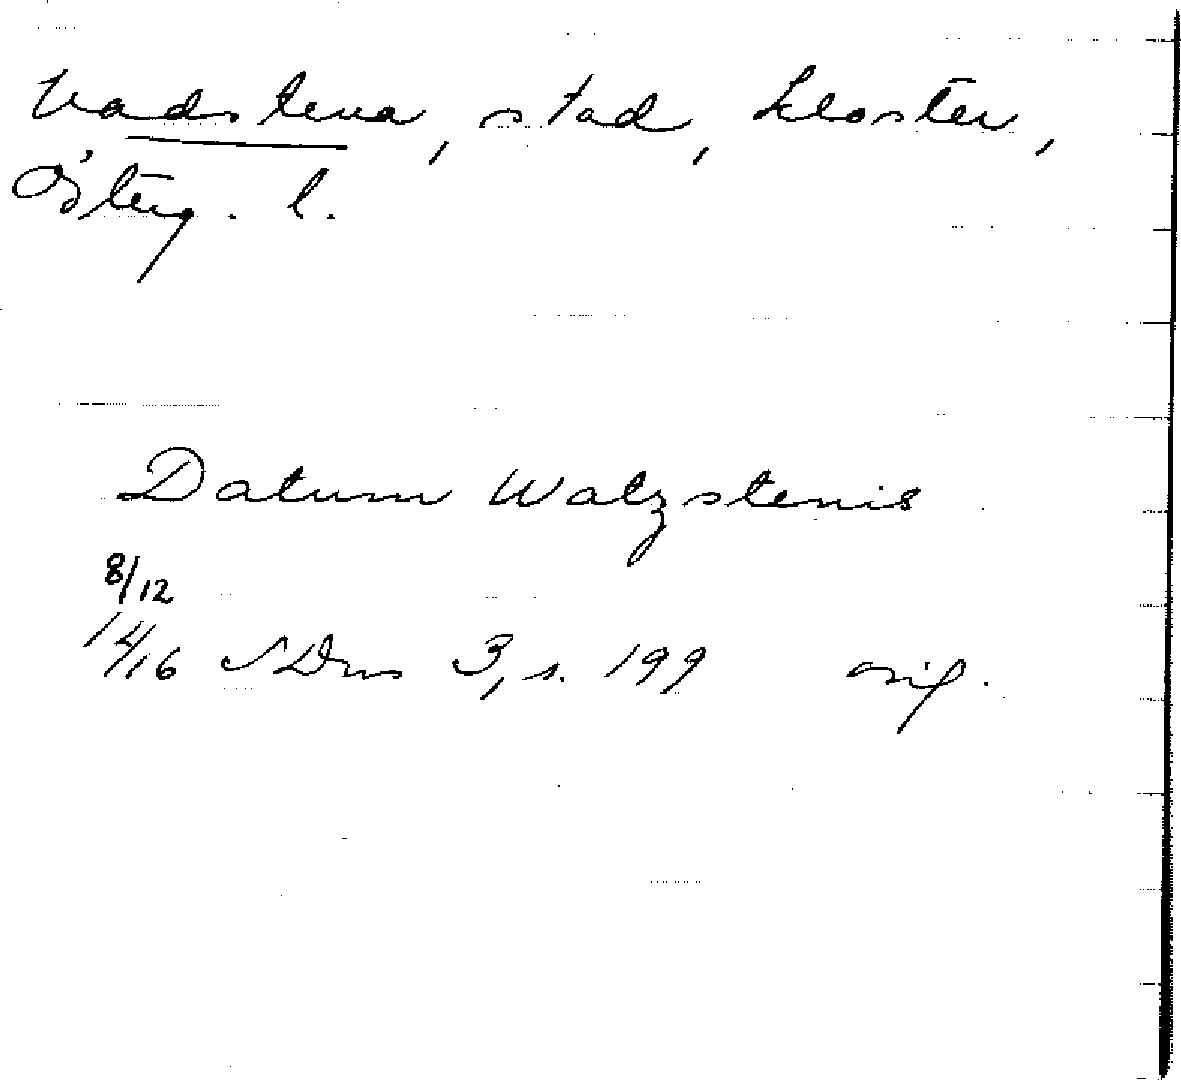 Vadstena, stad, kloster,
Österg. l.
Datum Watzstenis
8/12
14/16 SDns 3, s. 199 orig.